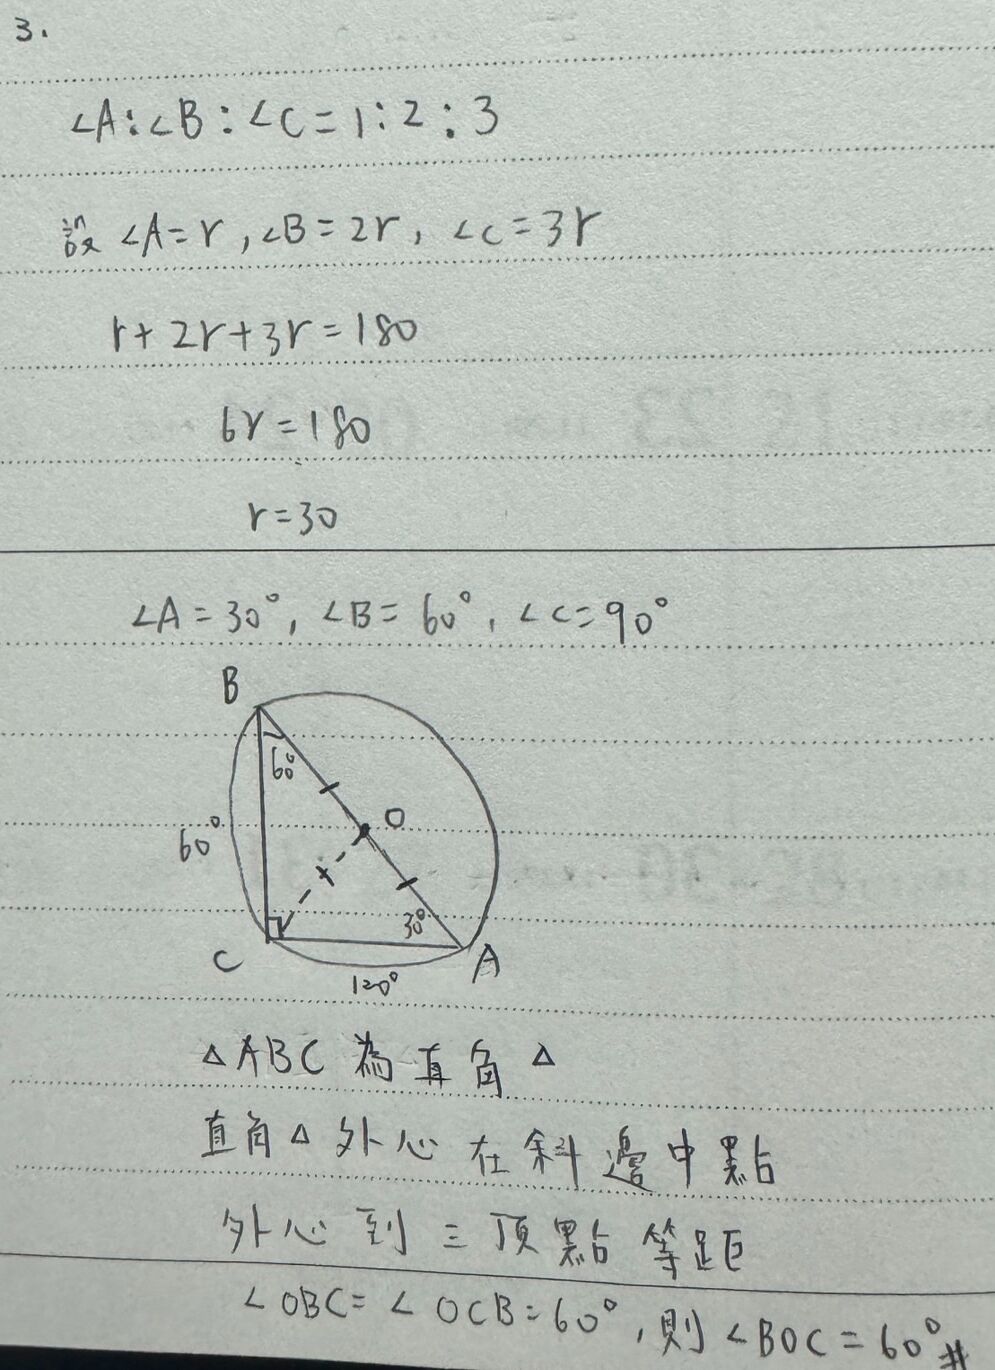 3.
∠A:∠B:∠C=1:2:3
設 ∠A=r,∠B=2r, ∠C=3r
r+2r+3r=180
6r=180
r=30
∠A=30°, ∠B=60°, ∠C=90°
B
60°
O
60°
30°
C
A
120°
△ABC 為直角△
直角△外心在斜邊中點
外心到三頂點等距
∠OBC=∠OCB=60°,則∠BOC=60°#